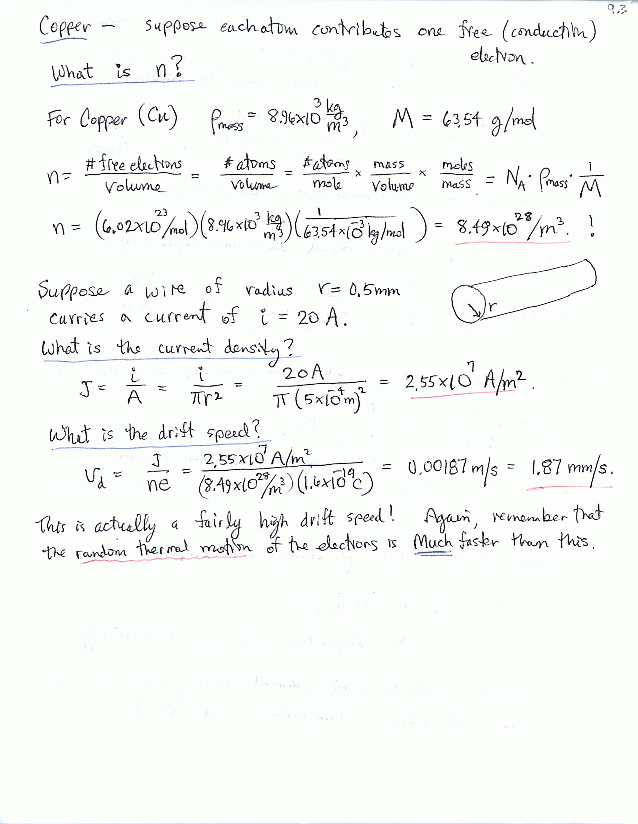 9.3
Copper – suppose each atom contributes one free (conduction)
electron.
What is n?
For Copper (Cu) ρmass = 8.96×10³ kg/m³, M = 63.54 g/mol
n = # free electrons/volume = # atoms/volume = # atoms/mole × mass/volume × moles/mass = N_A · ρmass · 1/M
n = (6.02×10²³/mol)(8.96×10³ kg/m³)(1/63.54×10⁻³ kg/mol) = 8.49×10²⁸/m³. !
Suppose a wire of radius r = 0.5mm
carries a current of i = 20 A.
r
What is the current density?
J = i/A = i/πr² = 20A/π(5×10⁻⁴m)² = 2.55×10⁷ A/m².
What is the drift speed?
v_d = J/ne = 2.55×10⁷ A/m²/(8.49×10²⁸/m³)(1.6×10⁻¹⁹C) = 0.00187 m/s = 1.87 mm/s.
This is actually a fairly high drift speed! Again, remember that
the random thermal motion of the electrons is Much faster than this.